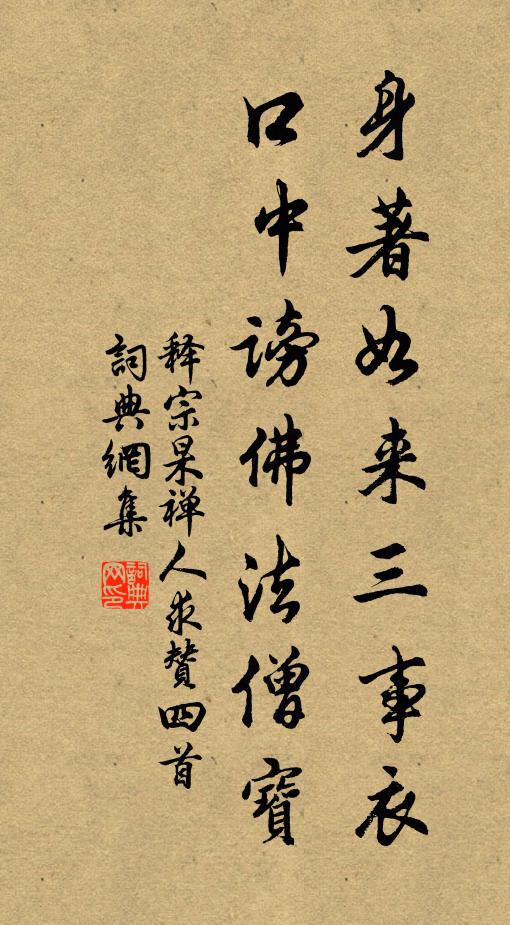 身著如来三事衣
口中謗佛法僧寶
释宗杲禅人求贊四首
詞典網集
詞典网印